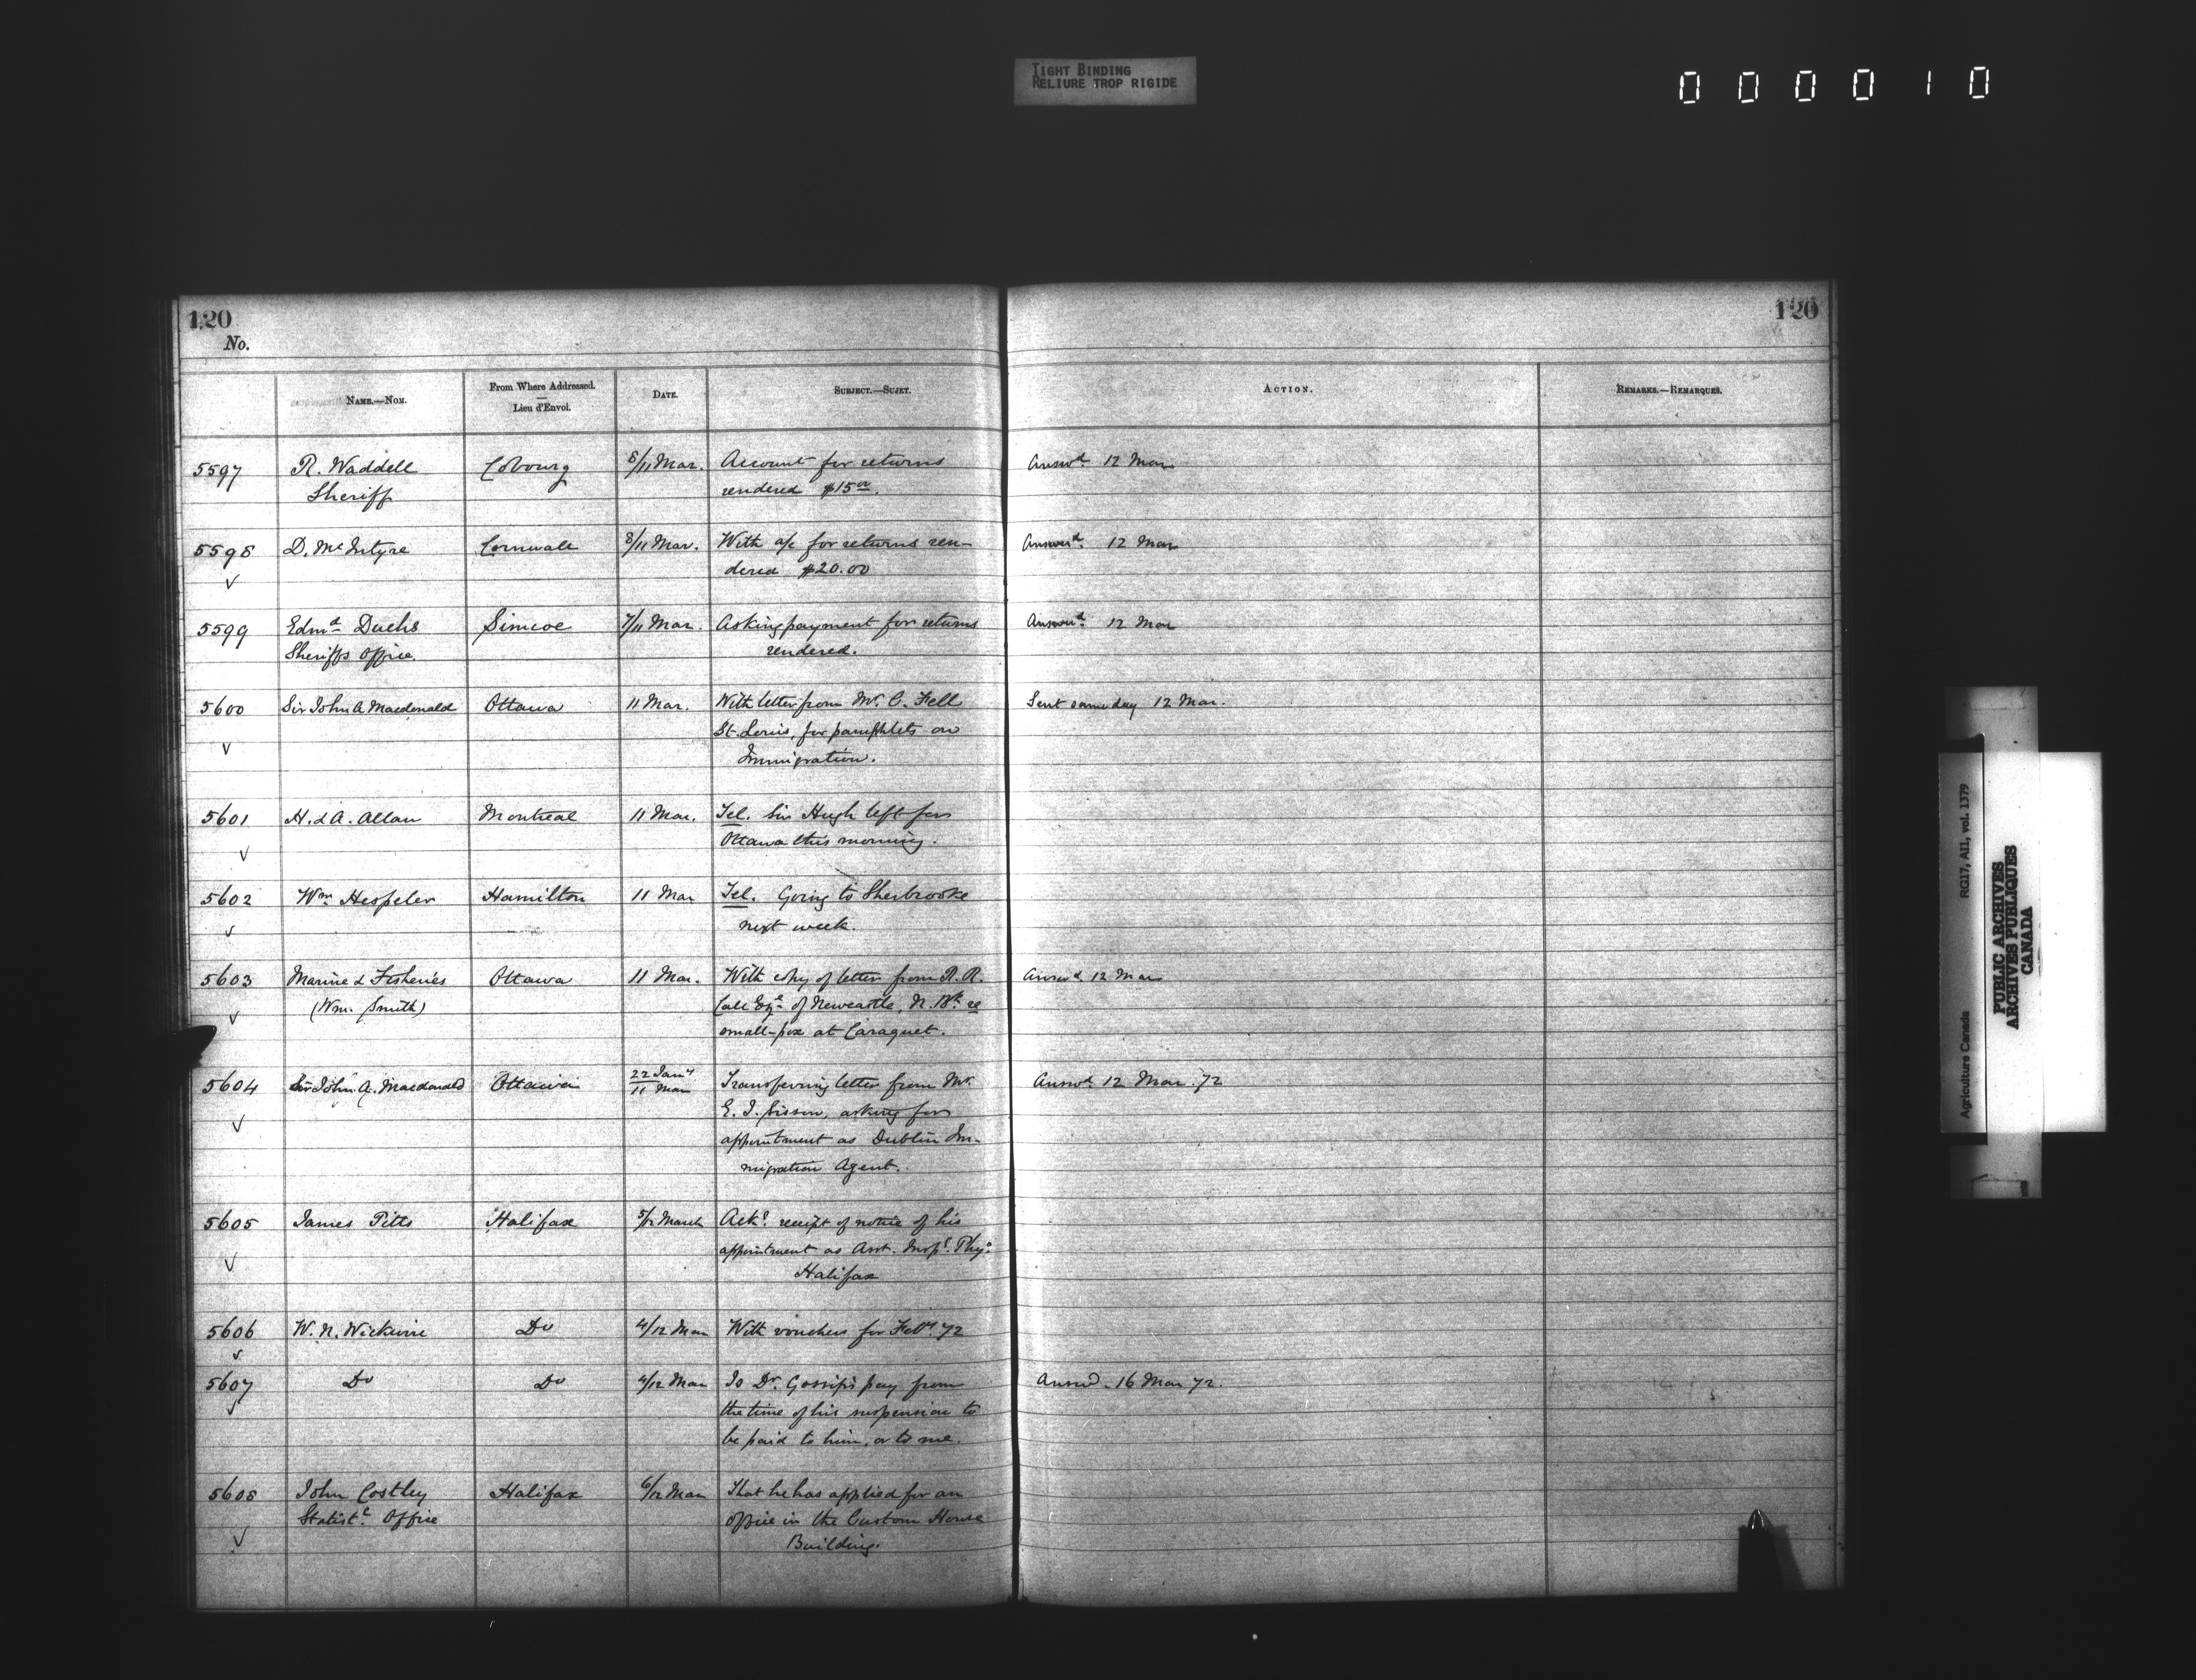 TIGHT BINDING
RELIURE TROP RIGIDE
0 0 0 0 1 0
120
No.
120
NAME.—NOM.
From Where Addressed.
—
Lieu d'Envoi.
DATE.
SUBJECT.—SUJET.
ACTION.
REMARKS.—REMARQUES.
5597 R. Waddell Cobourg 8/11 Mar. Account for returns Answd. 12 Mar
Sheriff rendered $15 00.
5598 D. McIntyre Cornwall 8/11 Mar. With a/c for returns ren- Answerd. 12 Mar
✓ dered $20.00
5599 Edmd. Duchs Simcoe 7/11 Mar. Asking payment for returns Answerd. 12 Mar
Sheriffs Office. rendered.
5600 Sir John A Macdonald Ottawa 11 Mar. With letter from Mr. C. Fell Sent same day 12 Mar.
✓ St. Louis, for pamphlets on
Immigration.
5601 H. & A. Allan Montreal 11 Mar. Tel. Sir Hugh left for
✓ Ottawa this morning.
5602 Wm. Hespeler Hamilton 11 Mar Tel. Going to Sherbrooke
✓ next week.
5603 Marine & Fisheries Ottawa 11 Mar. With copy of letter from R. R. Answd. 12 Mar
(Wm. Smith) Call Esqr. of Newcastle, N. Bk. re
✓ small-pox at Caraquet.
5604 Sir John A. Macdonald Ottawa 22 Jany 11 Mar Transferring letter from Mr. Answd. 12 Mar. 72
✓ E. J. Sisson, asking for
appointment as Dublin Im-
migration Agent.
5605 James Pitts Halifax 5/12 March Ackg. receipt of notice of his
✓ appointment as Asst. Inspg. Phyn.
Halifax
5606 W. N. Wickwire Do 4/12 Mar With vouchers for Feby. 72
✓
5607 Do Do 4/12 Mar Is Dr. Gossip's pay from Answd. 16 Mar 72.
✓ the time of his suspension to
be paid to him, or to me.
5608 John Costley Halifax 6/12 Mar That he has applied for an
Statistl. Office office in the Custom House
✓ Building.
Agriculture Canada RG17, AII, vol. 1379
PUBLIC ARCHIVES
ARCHIVES PUBLIQUES
CANADA